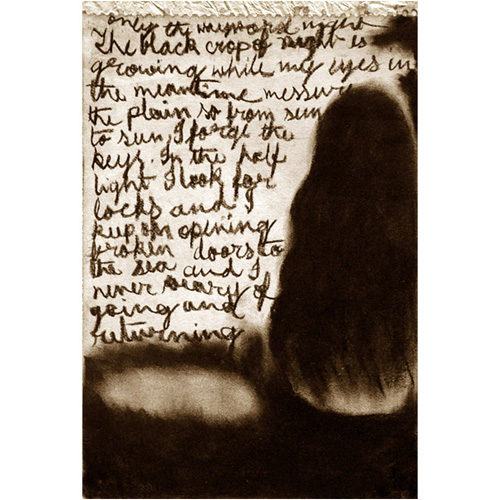 only the wayward night
The black crop of night is
growing while my eyes in
the meantime messure
the plain, so from sun
to sun, I forge the
keys. In the half
light I look for
locks and I
keep on opening
broken doors to
the sea and I
never weary of
going and
returning